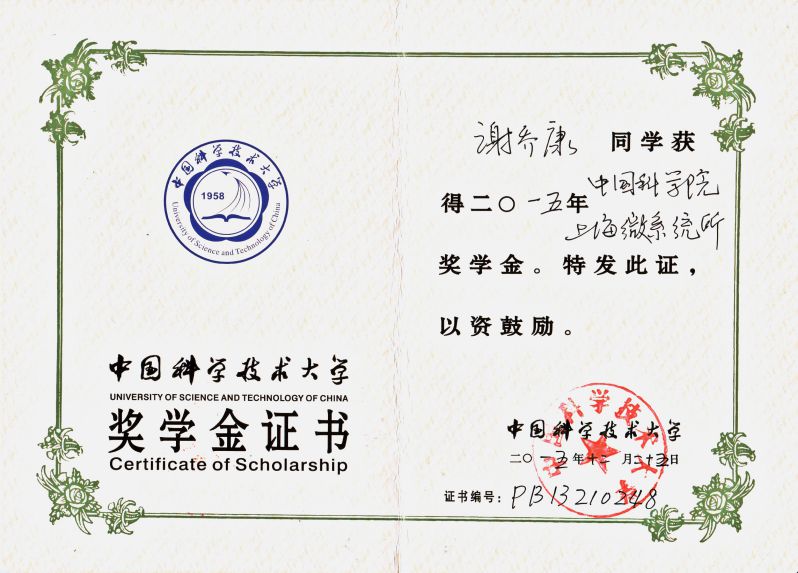 中国科学技术大学
1958
University of Science and Technology of China
中国科学技术大学
UNIVERSITY OF SCIENCE AND TECHNOLOGY OF CHINA
奖学金证书
Certificate of Scholarship
谢乔康 同学获
得二〇一五年 中国科学院
上海微系统所
奖学金。特发此证，
以资鼓励。
中国科学技术大学
二〇一五年十二月二十五日
证书编号：PB13210248
中国科学技术大学